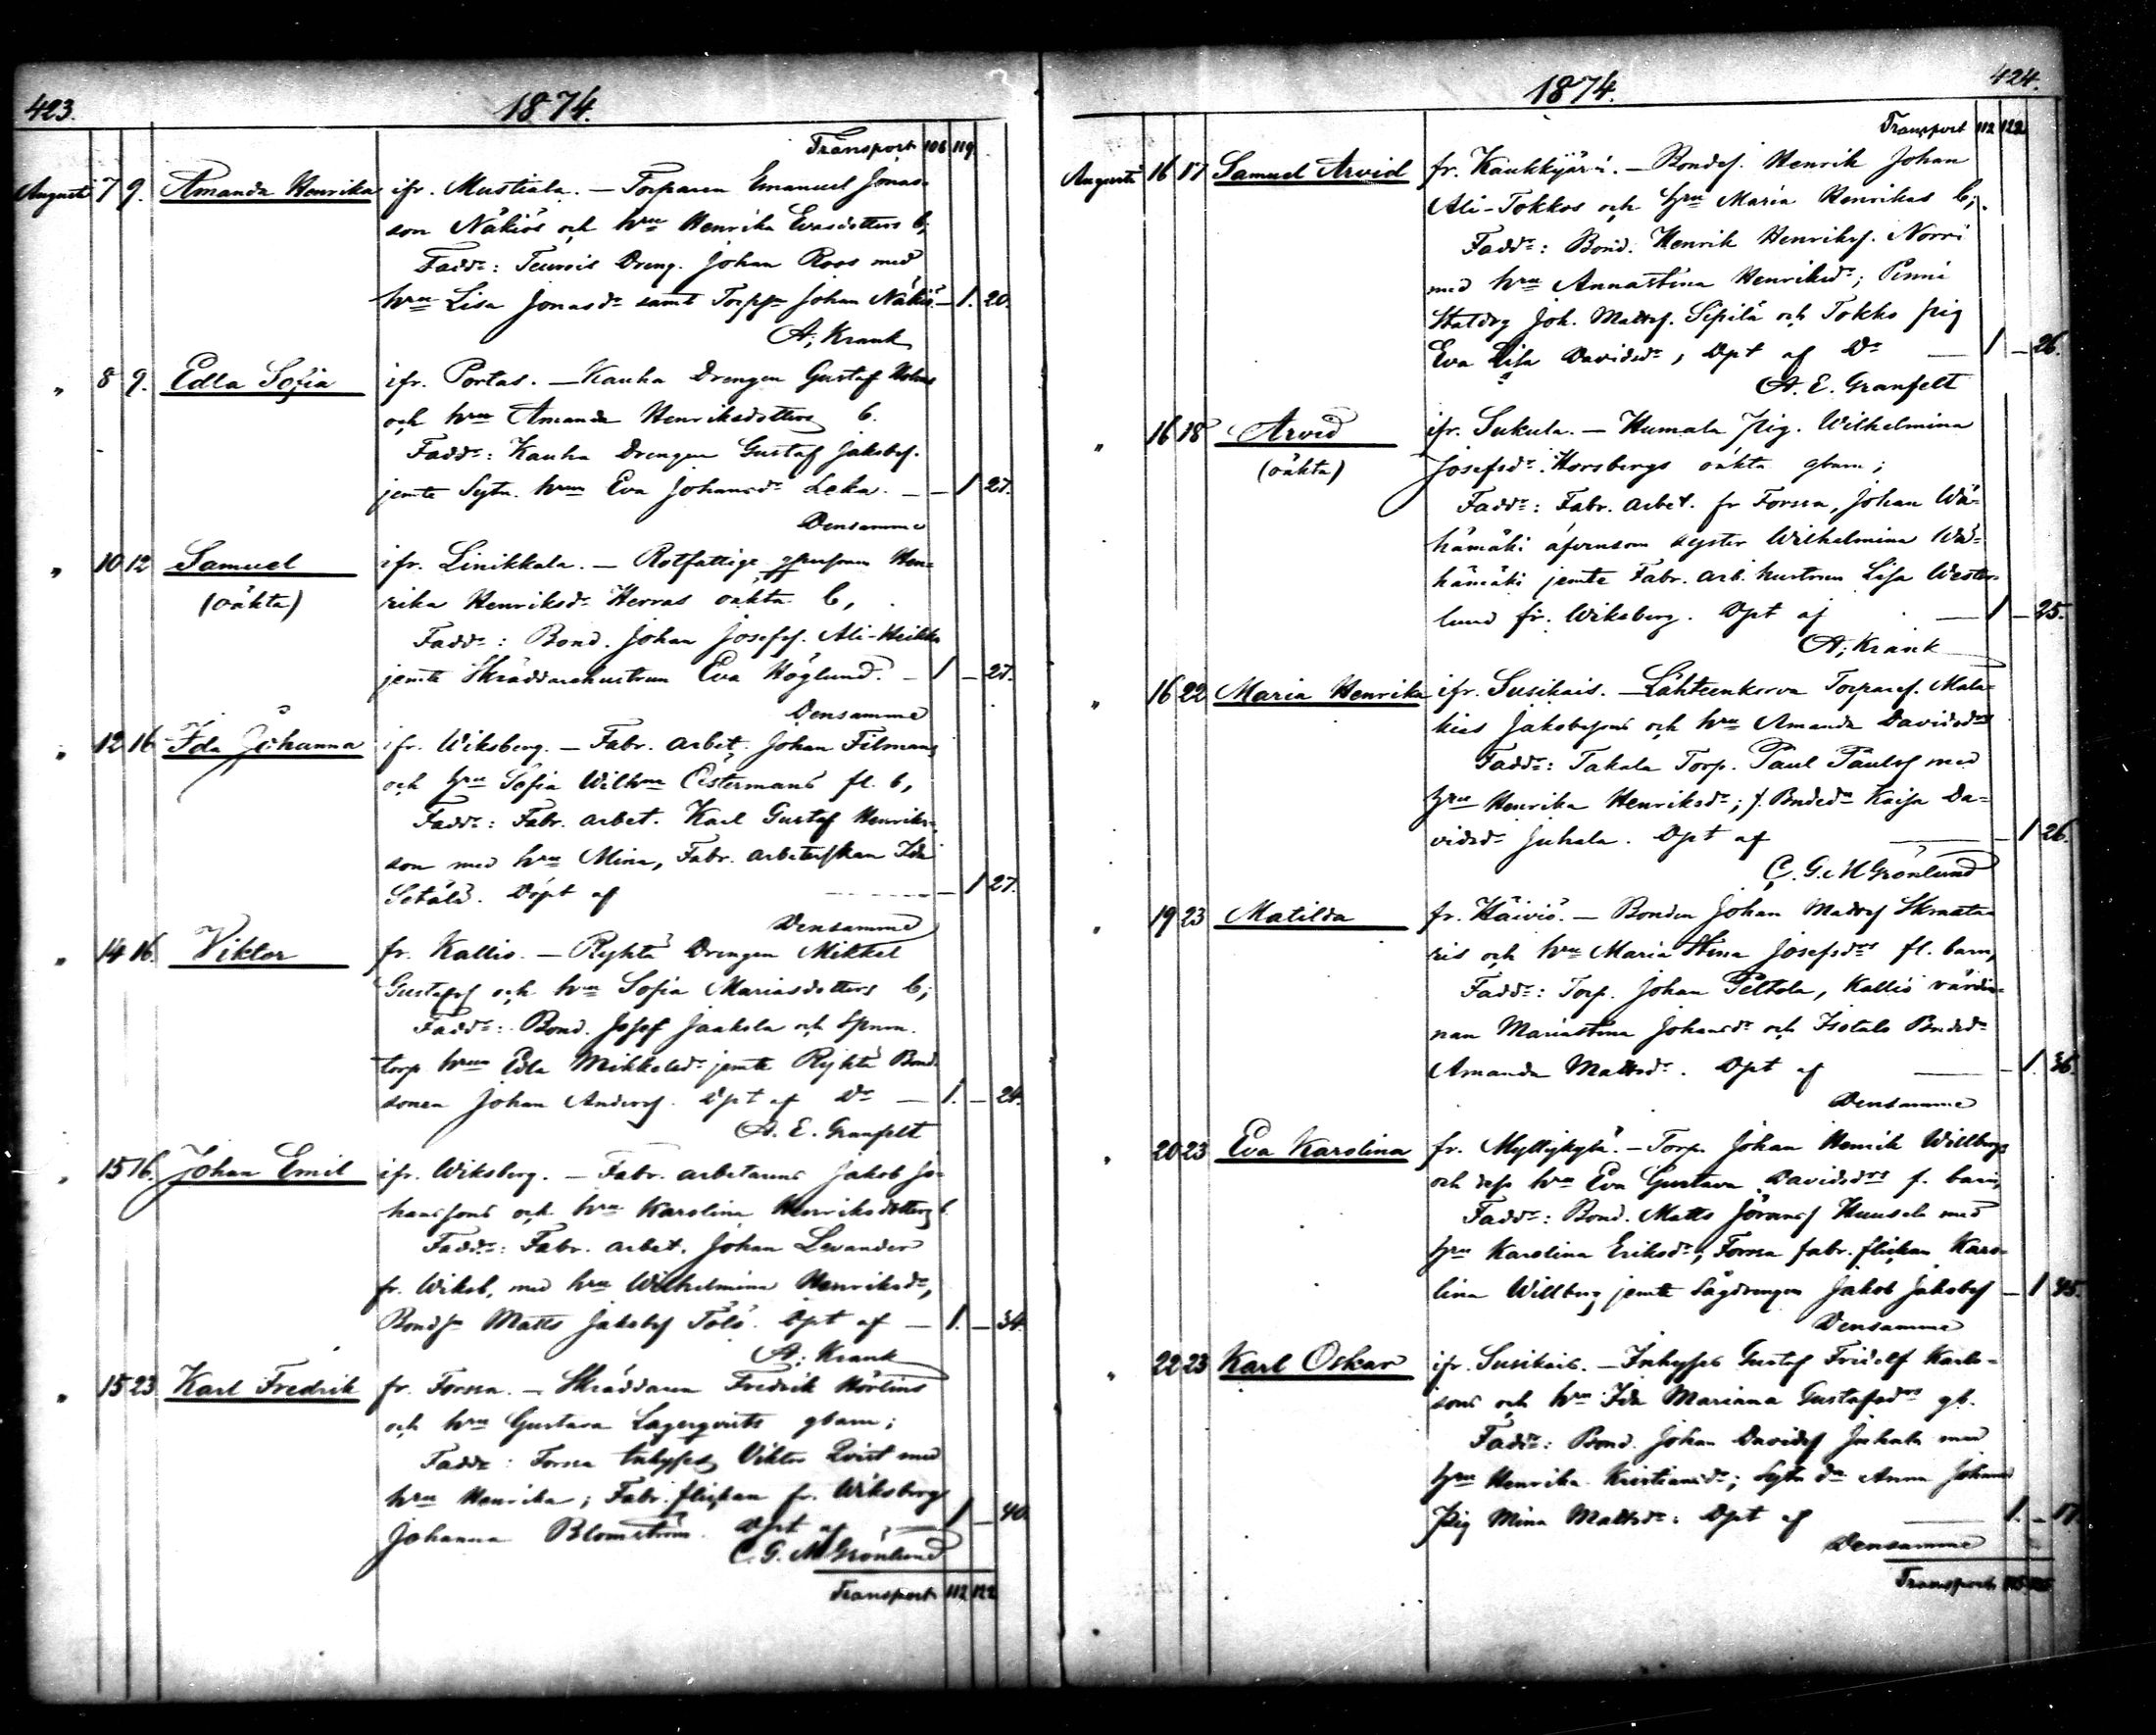 423.
1874.
Transport 106 119
Augusti 7 9. Amanda Henrika ifr. Mustiala. — Torparen Emanuel Jonas-
son Näkiös och hru Henrika Evasdotters b;
Fadd: Dreng. Johan Roos med
hru Lisa Jonasdr samt Johan Näkiö. — 1. 20.
A; Krank
" 8 9. Edla Sofia ifr. Portas. — Kauha Drengen Gustaf Holms
och hru Amanda Henriksdotters b.
Fadd: Kauha Drengen Gustaf Jakobss.
jemte Sytn. hrun Eva Johansdr Leka. — — 1 27.
Densamme
" 10 12 Samuel ifr. Linikkala. — Rotfattige Hen-
(oäkta) rika Henriksdr Herras oäkta b,
Fadd: Bond. Johan Josefss. Ali-Heikko
jemte Skräddarehustrun Eva Höglund. — 1 — 27.
Densamme
" 12 16 Ida Johanna ifr. Wiksberg. — Fabr. arbet. Johan Filmans
och hru Sofia Wilhna Östermans fl. b,
Fadd: Fabr. arbet. Karl Gustaf Henriks-
son med hru Mina, Fabr. arbeterskan Ida
Setälä. Döpt af — 1 27.
Densamme
" 14 16. Viktor fr. Kallio. — Ryhtä Drengen Mikkel
Gustafss och hru Sofia Mariasdotters b;
Fadd: Bond. Josef Jaakola och
torp hrun Edla Mikkelsdr jemte Ryhtä Bond-
sonen Johan Anderss. Dpt af Dr — 1. — 24.
A. E. Granfelt
" 15 16. Johan Emil ifr. Wiksberg. — Fabr. arbetarens Jakob Jo-
hanssons och hru Karolina Henriksdotters b
Fadd: Fabr. arbet. Johan Levander
fr. Wiksb, med hru Wilhelmina Henriksdr,
Matts Jakobss Tölö. Dpt af — 1. — 34.
A; Krank
" 15 23 Karl Fredrik fr. Forssa. — Skräddaren Fredrik Hörlins
och hru Gustava Lagerqvists gbarn;
Fadd: Forssa Inhyses Viktor Qvist med
hru Henrika; Fabr. flickan fr. Wiksberg
Johanna Blomström. Dpt af — 1 — 40.
C. G. M Grönlund
Transport 112 122
424.
1874.
Transport 112 122
Augusti 16 17 Samuel Arvid fr. Kaukkjärvi. — Bondes. Henrik Johan
Ali-Tokkos och hru Maria Henrikas b;
Fadd: Bond. Henrik Henrikss. Norri
med hru Annastina Henriksdr; Penni
Staldrg Joh. Mattss. Sipilä och Tokko pig
Eva Lisa Davidsdr, Dpt af Dr — 1 — 26.
A. E. Granfelt
" 16 18 Arvid ifr. Sukula. — Humala Pig. Wilhelmina
(oäkta) Josefsdr. Horsbergs oäkta gbarn;
Fadd: Fabr. arbet. fr Forssa, Johan Wä-
hämäki äfvensom syster Wilhelmina Wä-
hämäki jemte Fabr. arb. hustrun Lisa Wester-
lund fr. Wiksberg. Dpt af — 1 — 25.
A; Krank
" 16 22 Maria Henrika ifr. Susikais. — Lähteenkorva Torpares. Mala-
kias Jakobssons och hru Amanda Davidsdrs
Fadd: Takala Torp. Paul Paulss med
hru Henrika Henriksdr; f. Bndedr Kaisa Da-
vidsdr Juhala. Dpt af — — 1 26.
C. G. M Grönlund
" 19 23 Matilda fr. Häiviö. — Bonden Johan Madss
och hru Maria Stina Josefsdrs fl. barn,
Fadd: Torp. Johan Peltola, Kallio värdin-
nan Mariastina Johansdr och Isotalo Bndedr
Amanda Mattsdr. Dpt af — — 1. 36.
Densamme
" 20 23 Eva Karolina fr. Myllykylä. — Torp. Johan Henrik Willbergs
och dess hru Eva Gustava Davidsdrs f. barn,
Fadd: Bond. Matts Jöranss Huusela med
hru Karolina Eriksdr; Forssa fabr. flickan Karo-
lina Willberg jemte Sågdrengen Jakob Jakobss — 1 45.
Densamme
" 22 23 Karl Oskar ifr. Susikais. — Inhyses Gustaf Fridolf Karls-
sons och hru Ida Mariana Gustafsdrs gb.
Fadd: Bond. Johan Davidss Juhala med
hru Henrika Kristiansdr; Sytn dr Anna Johans
Pig Mina Mattsdr. Dpt af — 1. — 17.
Densamme
Transport